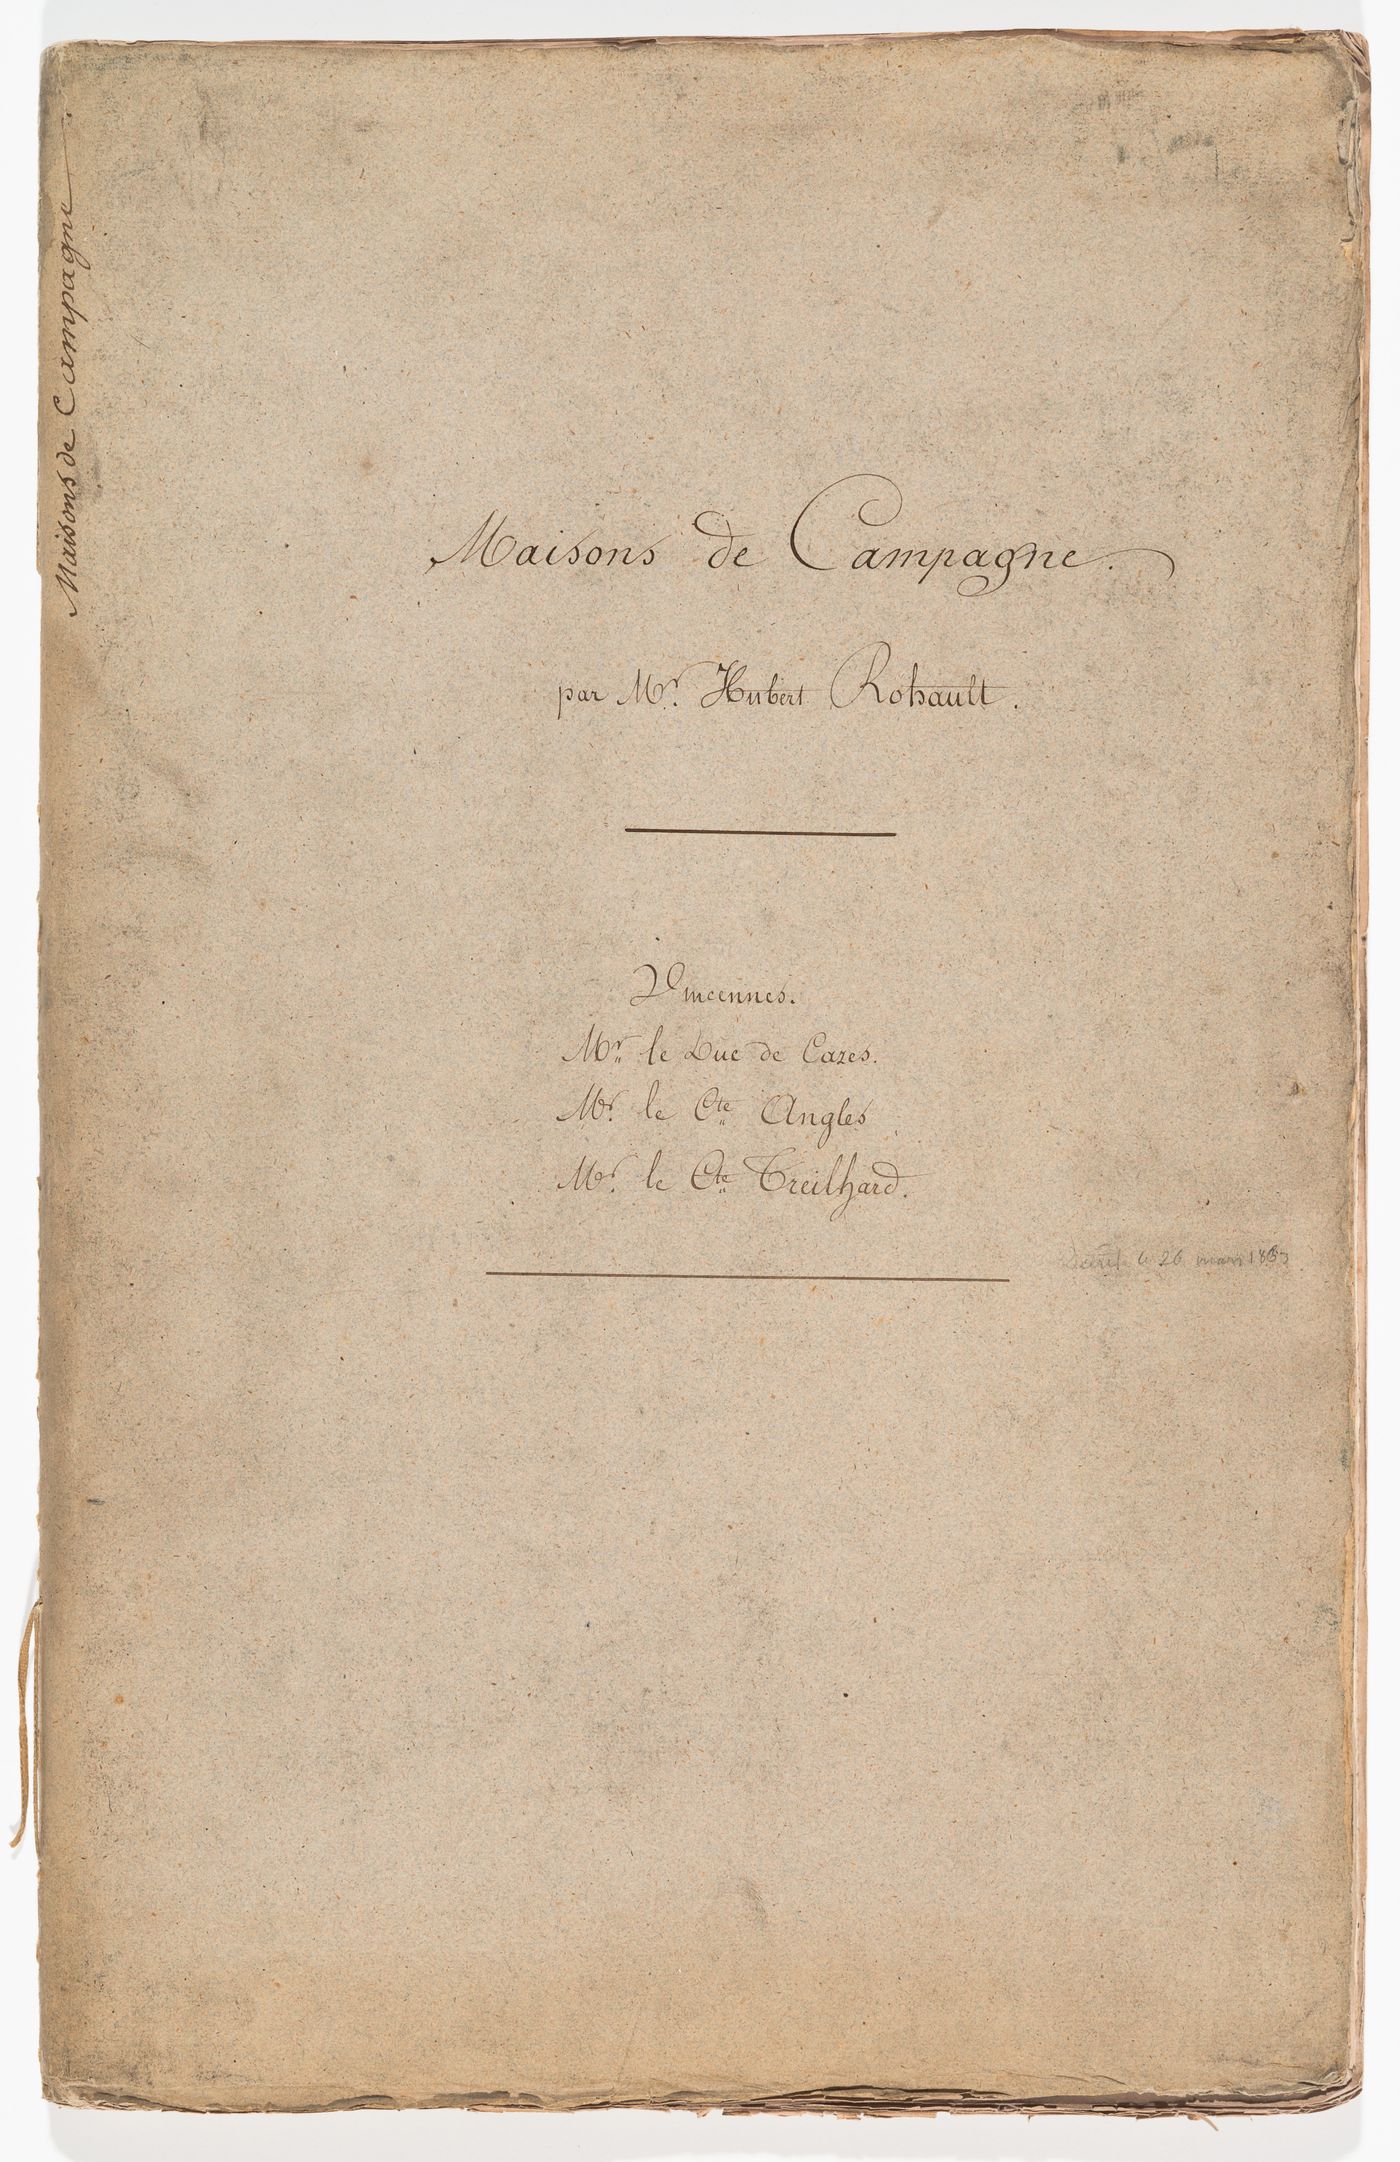 Maisons de Campagne
Maisons de Campagne.
par Mr. Hubert Rohault.
Vincennes.
Mr. le Duc de Cazes.
Mr. le Cte Angles
Mr. le Cte Treilhard.
le 26 mars 18